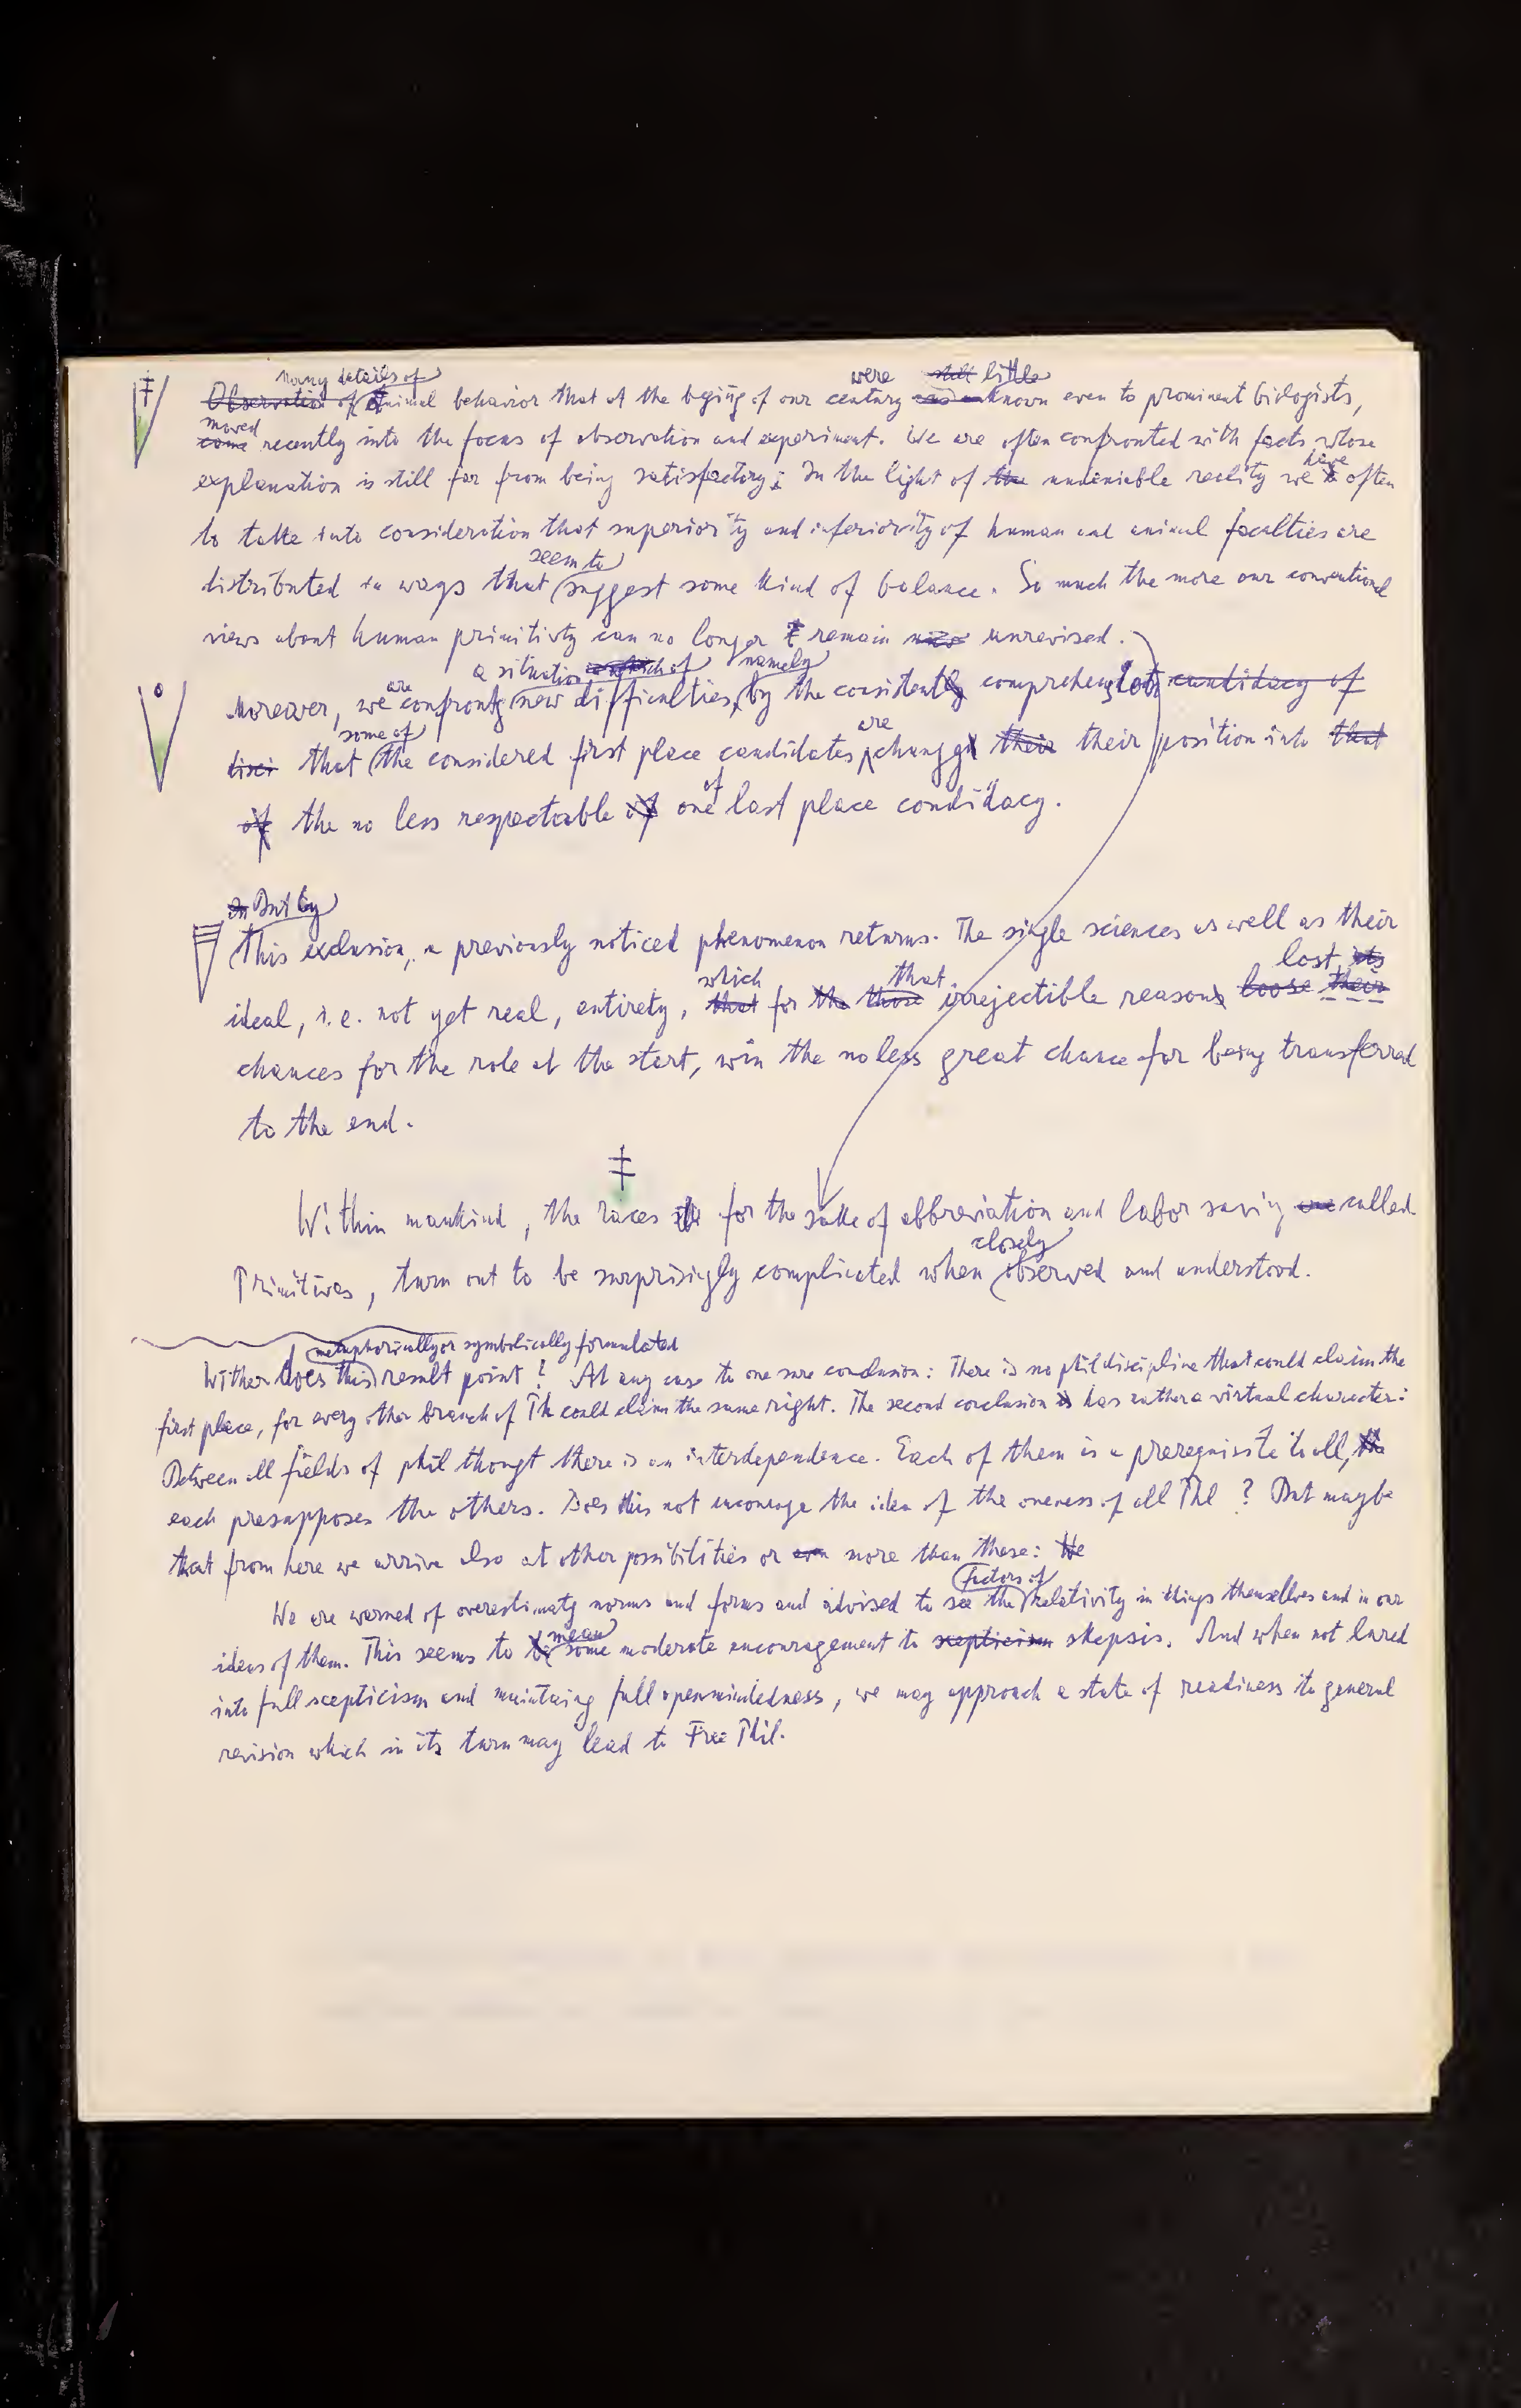 ‡ many details of
Observation of Animal behavior that at the begiing of our century were still little known even to prominent biologists,
moved
came recently into the focus of observation and experiment. We are often confronted with facts whose
explanation is still far from being satisfactory; In the light of the undeniable reality we have often
to take into consideration that superiority and inferiority of human and animal faculties are
seem to
distributed in ways that suggest some kind of balance. So much the more our conventional
views about human primitivty can no longer remain unrevised.
a situation which of namely
Moreover, we are confrontg new difficulties, by the considentlg comprehensloti candidacy of
some of are
disci that the considered first place candidates changg their their position into that
of the no less respectable of one of last place candidacy.
In But by
This exclusion, a previously noticed phenomenon returns. The single sciences as well as their
which that lost its
ideal, i.e. not yet real, entirety, that for the those irrejectible reasons loose their
chances for the role at the start, win the no less great chance for being transferred
to the end.
‡
Within mankind, the races for the sake of abbreviation and labor saving are called
closely
Primitives, turn out to be surprisigly complicated when observed and understood.
metaphorically or symbolically formulated
Wither does this result point? At any case to one sure conclusion: There is no phil discipline that could claim the
first place, for every other branch of Ph could claim the same right. The second conclusion is has rather a virtual character:
Between all fields of phil thougt there is an interdependence. Each of them is a prerequisite to all, the
each presupposes the others. Does this not encourage the idea of the oneness of all Phl? But maybe
that from here we arrive also at other possibilities or even more than these: We
factors of
We are warned of overestimatg norms and forms and advised to see the relativity in things themselves and in our
mean
ideas of them. This seems to be some moderate encouragement to scepticism skepsis. And when not lured
into full scepticism and maintaing full openmindedness, we may approach a state of readiness to general
revision which in its turn may lead to Free Phil.